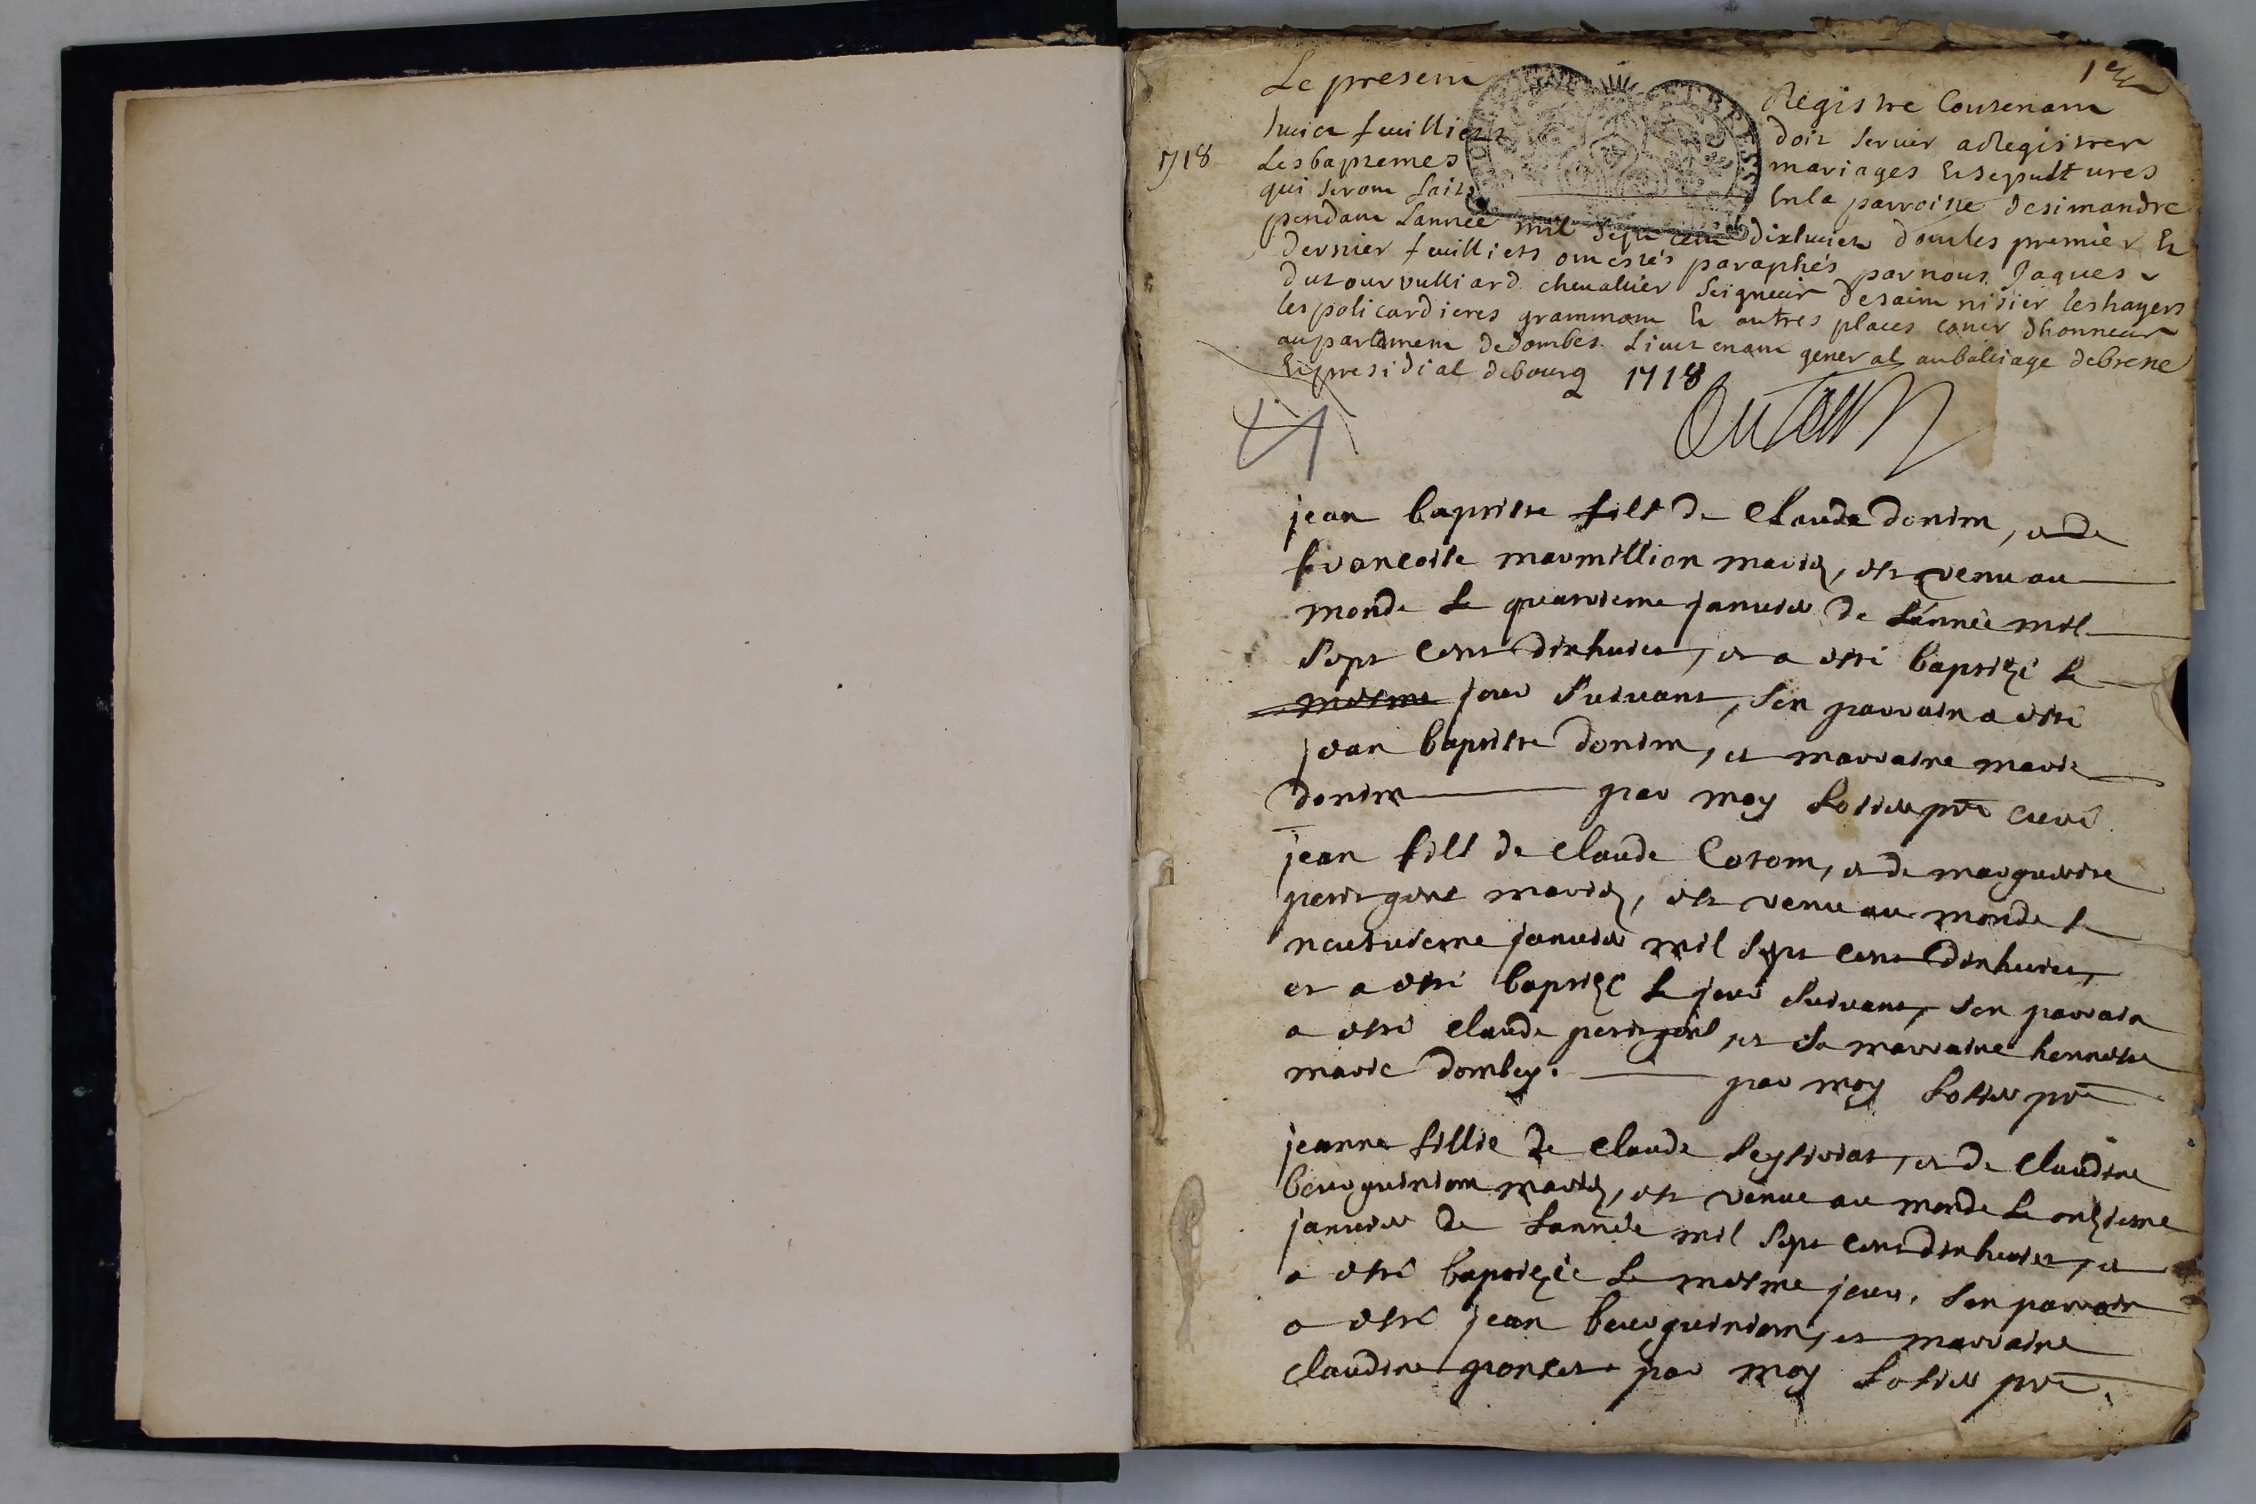 1er
Le present Registre Contenant
huict feuilliets doit servir a Registrer
1718
Les baptemes mariages Et sepultures
qui seront faits En la parroisse desimandre
pendant Lannée mil sept cent dixhuict dont les premier Et
dernier feuilliets ont estés paraphés par nous Jaques
dutour vulliard chevallier seigneur desaint nisier les hayers
les policardieres grammont Et autres places coner dhonneur
au parlement de dombes Lieutenant general au balliage de bresse
Et presidial de bourg 1718
Dutour
jean baptiste fils de Claude donim, et de
francoise marmillion mariez, est venu au
monde le quatrieme janvier de Lánnée mil
sept cent dixhuict, et a esté baptizé le
mesme jour suivant, son parrain a esté
jean baptiste donim, et marraine marie
donim par moy pre curé
jean fils de claude Cotom, et de marguerite
petit gone mariez, est venu au monde le
neufvieme janvier mil sept cent dixhuict,
et a esté baptizé le jour suivant, son parrain
a esté claude petit gone, et sa marraine honneste
marie dombey. par moy pre
jeanne fillie de claude et de claudine
bourguiniom mariez, est venue au monde le onzieme
janvier de Lannée mil sept cent dixhuict, et
a esté baptizée le mesme jour, son parrain
a esté jean bourguiniom, et marraine
claudine poncet par moy pre.